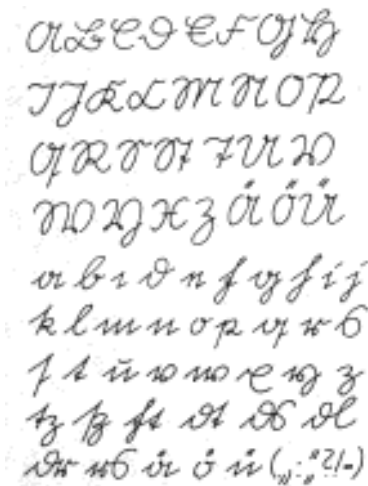 A B C D E F G H
I J K L M N O P
Q R S St T U V
W Y X Z Ä Ö Ü
a b c d e f g h i j
k l m n o p q r s
ſ t u v w x y z
tz ß ſt dt ds dl
dr rs ä ö ü („:„“?!=)